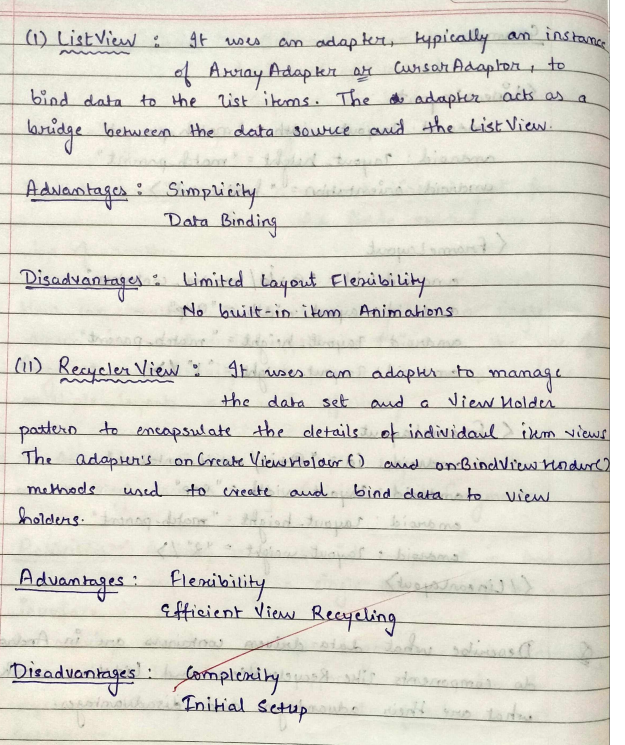 (1) ListView : It uses an adapter, typically an instance
of ArrayAdapter or CursorAdaptor, to
bind data to the list items. The adapter acts as a
bridge between the data source and the ListView.
Advantages : Simplicity
Data Binding
Disadvantages : Limited Layout Flexibility
No built-in item Animations
(11) Recycler View : It uses an adapter to manage
the data set and a View Holder
pattern to encapsulate the details of individaul item views
The adapter's onCreateViewHolder() and onBindViewHolder()
methods used to create and bind data to view
holders.
Advantages : Flexibility
Efficient View Recycling
Disadvantages : Complexity
Initial Setup